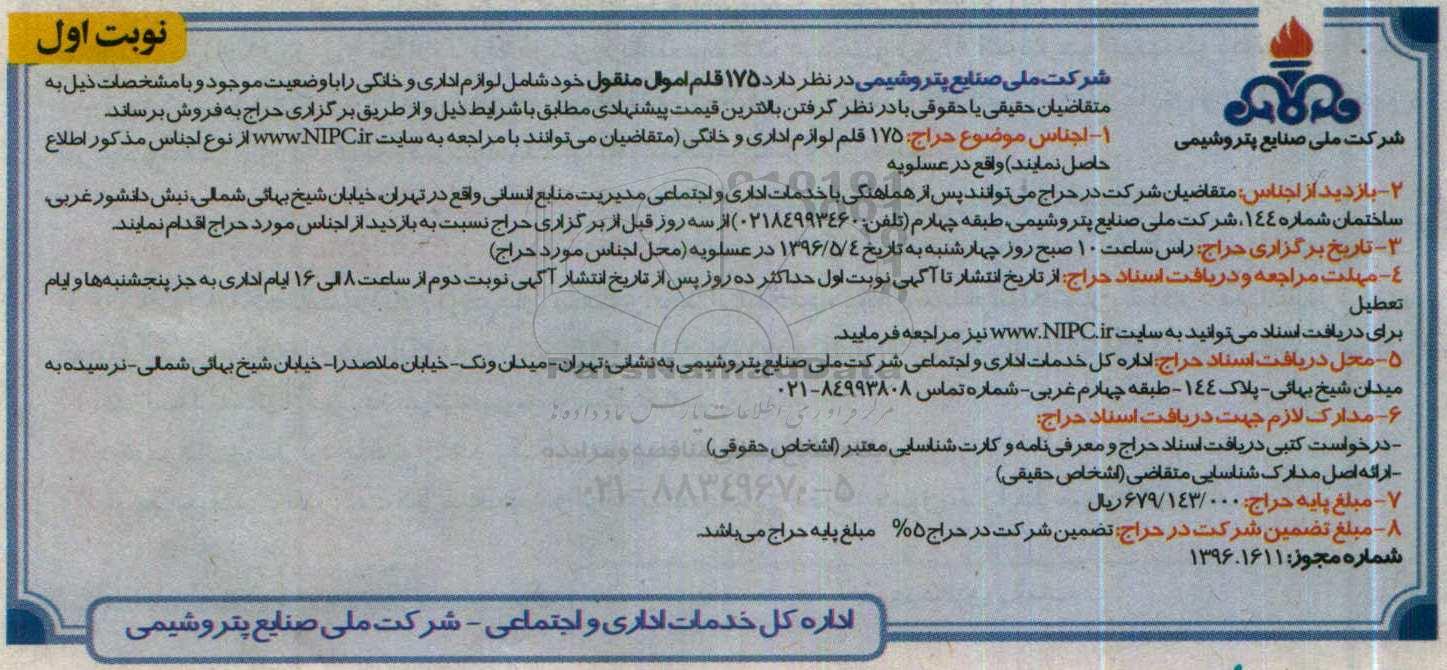 نوبت اول
شرکت ملی صنایع پتروشیمی
شرکت ملی صنایع پتروشیمی در نظر دارد ۱۷۵ قلم اموال منقول خود شامل لوازم اداری و خانگی را با وضعیت موجود و با مشخصات ذیل به
متقاضیان حقیقی یا حقوقی با در نظر گرفتن بالاترین قیمت پیشنهادی مطابق با شرایط ذیل و از طریق برگزاری حراج به فروش برساند.
۱- اجناس موضوع حراج: ۱۷۵ قلم لوازم اداری و خانگی (متقاضیان می‌توانند با مراجعه به سایت www.NIPC.ir از نوع اجناس مذکور اطلاع
حاصل نمایند) واقع در عسلویه
۲- بازدید از اجناس: متقاضیان شرکت در حراج می‌توانند پس از هماهنگی با خدمات اداری و اجتماعی مدیریت منابع انسانی واقع در تهران، خیابان شیخ بهائی شمالی، نبش دانشور غربی،
ساختمان شماره ۱۴۴، شرکت ملی صنایع پتروشیمی، طبقه چهارم (تلفن: ۰۲۱۸۴۹۹۳۴۶۰) از سه روز قبل از برگزاری حراج نسبت به بازدید از اجناس مورد حراج اقدام نمایند.
۳- تاریخ برگزاری حراج: راس ساعت ۱۰ صبح روز چهارشنبه به تاریخ ۱۳۹۶/۵/۴ در عسلویه (محل اجناس مورد حراج)
۴- مهلت مراجعه و دریافت اسناد حراج: از تاریخ انتشار تا آگهی نوبت اول حداکثر ده روز پس از تاریخ انتشار آگهی نوبت دوم از ساعت ۸ الی ۱۶ ایام اداری به جز پنجشنبه‌ها و ایام
تعطیل
برای دریافت اسناد می‌توانید به سایت www.NIPC.ir نیز مراجعه فرمایید.
۵- محل دریافت اسناد حراج: اداره کل خدمات اداری و اجتماعی شرکت ملی صنایع پتروشیمی به نشانی: تهران- میدان ونک- خیابان ملاصدرا- خیابان شیخ بهائی شمالی- نرسیده به
میدان شیخ بهائی- پلاک ۱۴۴- طبقه چهارم غربی- شماره تماس ۸۴۹۹۳۸۰۸-۰۲۱
۶- مدارک لازم جهت دریافت اسناد حراج:
-درخواست کتبی دریافت اسناد حراج و معرفی‌نامه و کارت شناسایی معتبر (اشخاص حقوقی)
-ارائه اصل مدارک شناسایی متقاضی (اشخاص حقیقی)
۷- مبلغ پایه حراج: ۶۷۹/۱۴۳/۰۰۰ ریال
۸- مبلغ تضمین شرکت در حراج: تضمین شرکت در حراج ۵% مبلغ پایه حراج می‌باشد.
شماره مجوز: ۱۳۹۶.۱۶۱۱
اداره کل خدمات اداری و اجتماعی - شرکت ملی صنایع پتروشیمی
ParsNamadData
مرکز فرآوری اطلاعات پارس نماد داده ها
۰۲۱-۸۸۳۴۹۶۷۰-۵